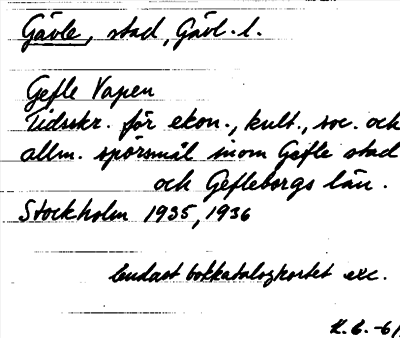 Gävle, stad, Gävl. l.
Gefle Vapen
Tidsskr. för ekon., kult., soc. och
allm. spörsmål inom Gefle stad
och Gefleborgs län.
Stockholm 1935, 1936
Endast bokkatalogkortet exc.
K. G. -61